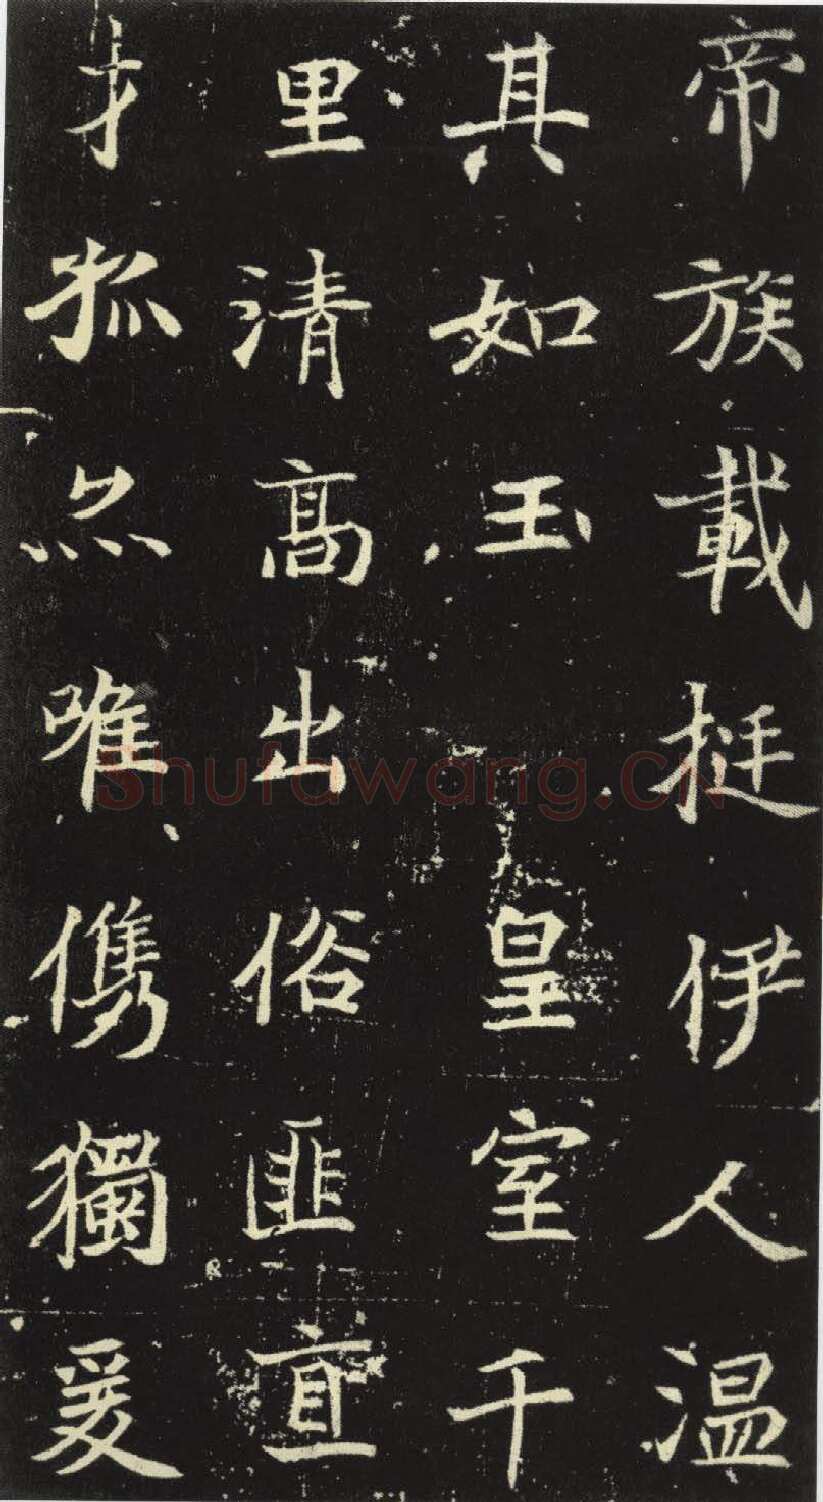 帝族載挺伊人温
其如玉皇室千
里清高出俗匪直
才孤亦唯儁獨爰
Shufawang.CN